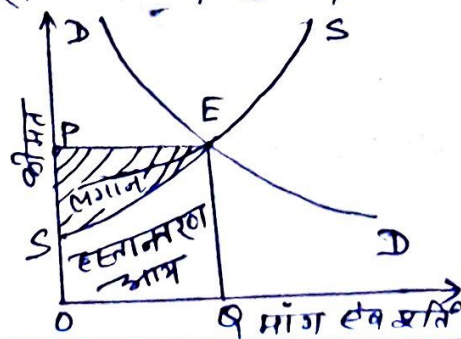 D
S
E
P
कीमत
लगान
S
हस्तान्तरण
आय
D
O
Q मांग एवं पूर्ति